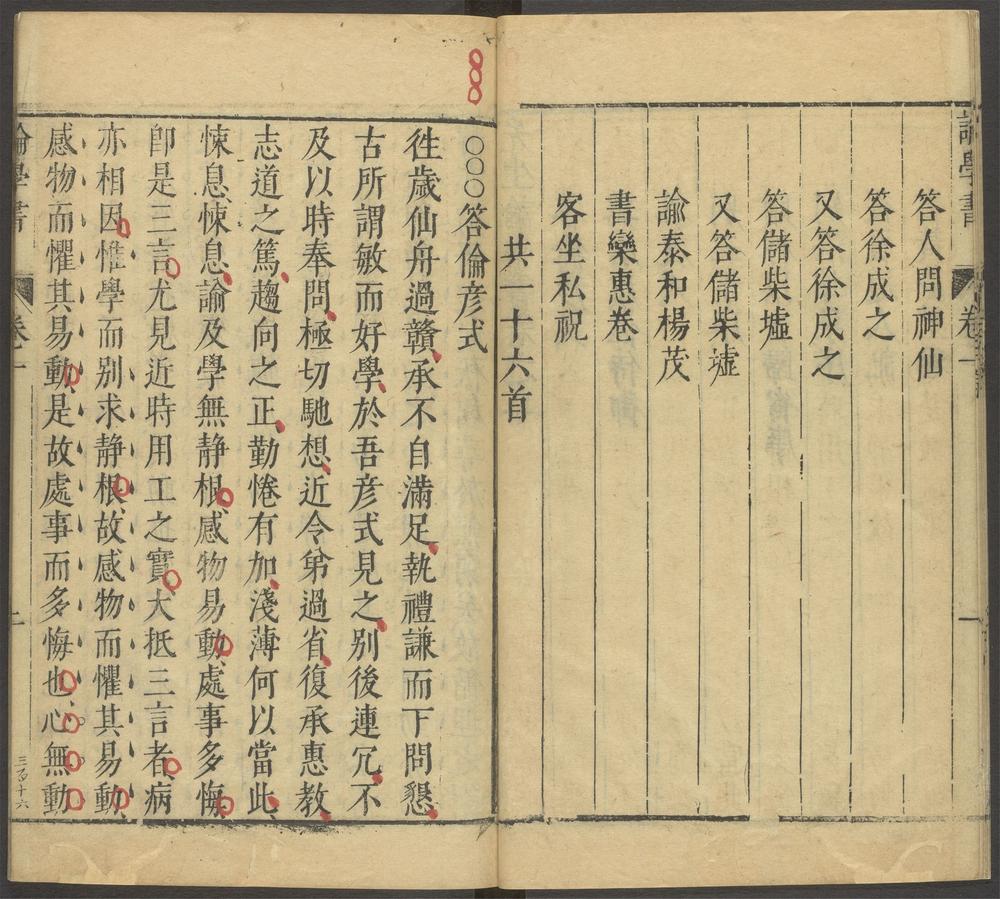 論學書
卷一
一
答人問神仙
答徐成之
又答徐成之
答儲柴墟
又答儲柴墟
諭泰和楊茂
書欒惠卷
客坐私祝
共一十六首
〇〇〇答倫彥式
徃歲仙舟過贛承不自滿足執禮謙而下問懇
古所謂敏而好學於吾彥式見之別後連冗不
及以時奉問極切馳想近令弟過省復承惠教
志道之篤趨向之正勤惓有加淺薄何以當此
悚息悚息諭及學無静根感物易動處事多悔
即是三言尤見近時用工之實大抵三言者病
亦相因惟學而別求静根故感物而懼其易動
感物而懼其易動是故處事而多悔也心無動
論學書
卷一
三百十六